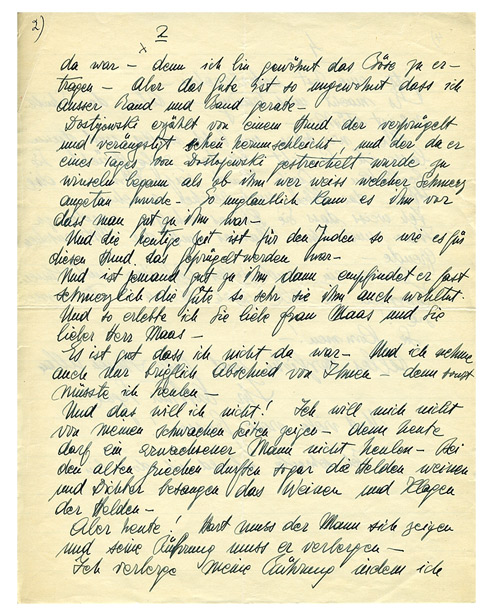 2)
2
da war – denn ich bin gewöhnt das Böse zu er-
tragen – Aber das Gute ist so ungewohnt dass ich
ausser Rand und Band gerate –
Dostojewski erzählt von einem Hund der verprügelt
und verängstigt scheu herumschleicht, und der da er
eines Tages von Dostojewski gestreichelt wurde zu
winseln begann als ob ihm wer weiss welcher Schmerz
angetan wurde – So unglaublich kam es ihm vor
dass man gut zu ihm war –
Und die heutige Zeit ist für den Juden so wie es für
diesen Hund das geprügelt werden war –
Und ist jemand gut zu ihm dann empfindet er fast
schmerzlich die Güte so sehr sie ihm auch wohltut.
Und so erlebte ich Sie liebe Frau Maas und Sie
lieber Herr Maas –
Es ist gut dass ich nicht da war – Und ich nehme
auch nur brieflich Abschied von Ihnen – denn sonst
müsste ich heulen –
Und das will ich nicht! Ich will mich nicht
von meinen schwachen Seiten zeigen – denn heute
darf ein erwachsener Mann nicht heulen – Bei
den alten Griechen durften sogar die Helden weinen
und Dichter besangen das Weinen und Klagen
der Helden –
Aber heute! Hart muss der Mann sich zeigen
und seine Rührung muss er verbergen –
Ich verberge meine Rührung indem ich